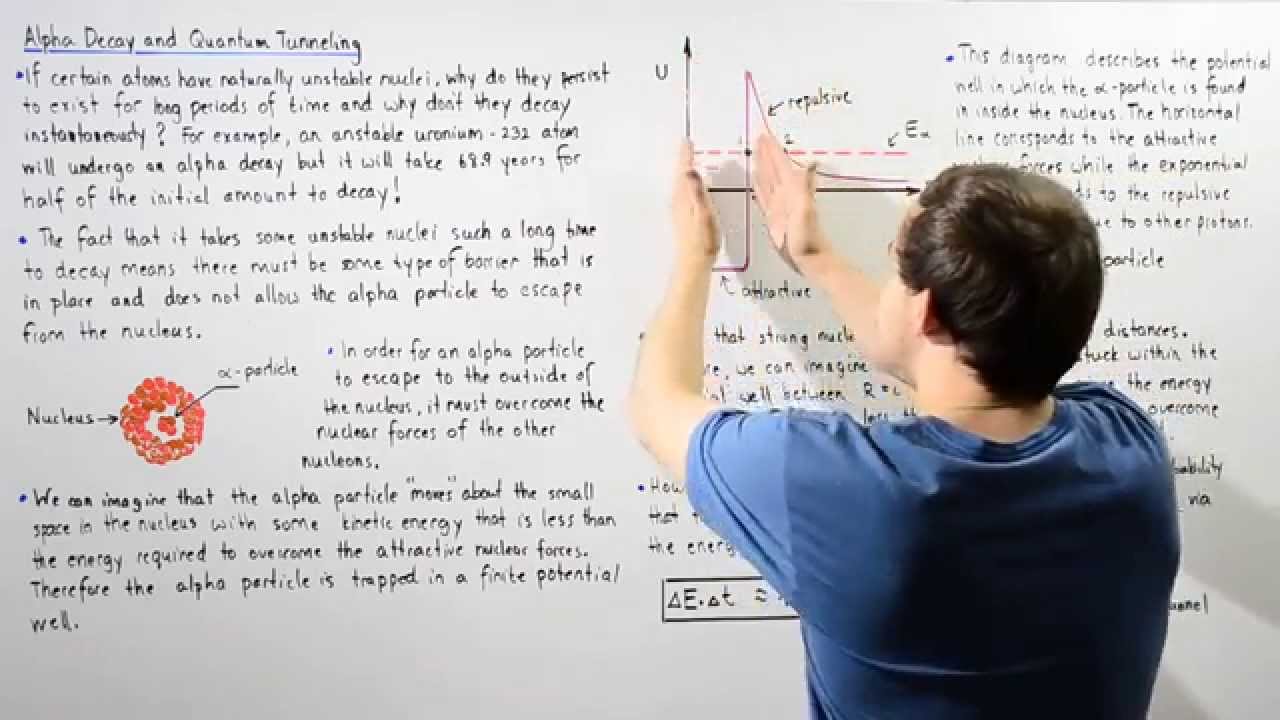 Alpha Decay and Quantum Tunneling
• If certain atoms have naturally unstable nuclei, why do they persist
to exist for long periods of time and why don't they decay
instantaneously? For example, an unstable uronium-232 atom
will undergo an alpha decay but it will take 68.9 years for
half of the initial amount to decay!
• The fact that it takes some unstable nuclei such a long time
to decay means there must be some type of barrier that is
in place and does not allow the alpha particle to escape
from the nucleus.
α-particle
Nucleus
• In order for an alpha particle
to escape to the outside of
the nucleus, it must overcome the
nuclear forces of the other
nucleons.
• We can imagine that the alpha particle "moves" about the small
space in the nucleus with some kinetic energy that is less than
the energy required to overcome the attractive nuclear forces.
Therefore the alpha particle is trapped in a finite potential
well.
U
repulsive
Eα
2
attractive
• This diagram describes the potential
well in which the α-particle is found
in inside the nucleus. The horizontal
line corresponds to the attractive
forces while the exponential
to the repulsive
to other protons.
particle
that strong
distances.
we can imagine
stuck within the
well between R
the energy
overcome
via
• How
that
the energ
ΔE·Δt ≈